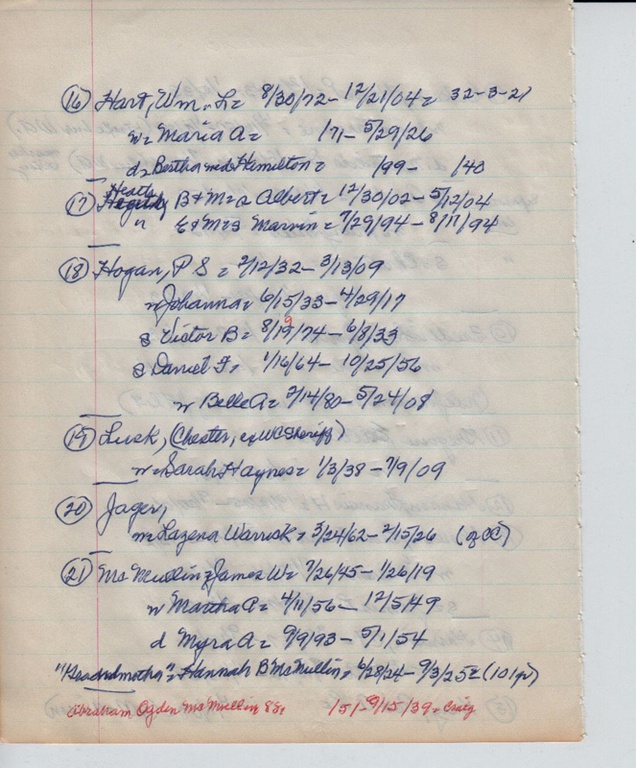 (16) Hart, Wm. L = 8/30/72 - 12/21/04 = 32-3-21
w = Maria A = /71 - 5/29/26
d = Bertha md Hamilton = /99 - /40
Heath
(17) B + Mrs Albert = 12/30/02 - 5/12/04
" E + Mrs Marvin = 7/29/94 - 8/11/94
(18) Hogan, P S = 2/12/32 - 3/13/09
w Johanna = 6/15/33 - 4/29/17
9
s Victor B = 8/19/74 - 6/8/33
s Daniel F = 1/16/64 - 10/25/56
w Belle A = 2/14/80 - 5/24/08
(19) Lusk, (Chester, ex WC Sheriff)
w = Sarah Haynes = 1/3/38 - 7/9/09
(20) Jager,
m Lazena Warrick = 3/24/62 - 2/15/26 (of CC)
(21) McMullin = James W = 7/26/45 - 1/26/19
w Martha P = 4/11/56 - 12/5/49
d Myra A = 9/9/93 - 5/1/54
"Grandmother" = Hannah B McMullin = 6/28/24 - 9/3/25 = (101 yr)
Abraham Ogden McMullin 88. /51 - 9/15/39 = Craig